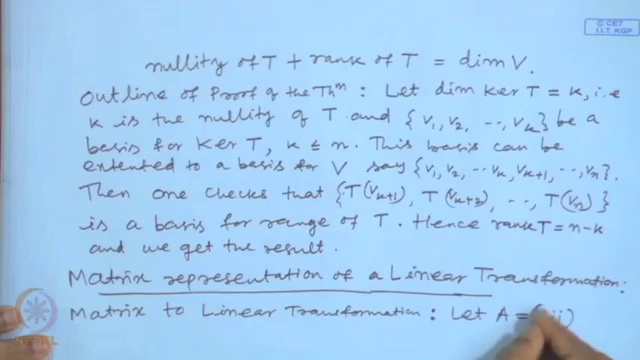 © CET
I.I.T. KGP
nullity of T + rank of T = dim V.
Outline of Proof of the Thm : Let dim Ker T = k, i.e
k is the nullity of T and {v1, v2, ··, vk} be a
basis for Ker T, k ≤ n. This basis can be
extented to a basis for V say {v1, v2, ·· vk, vk+1, ··, vn}.
Then one checks that {T(vk+1), T(vk+2), ··, T(vn)}
is a basis for range of T. Hence rank T = n-k
and we get the result.
Matrix representation of a Linear Transformation:
Matrix to Linear Transformation : Let A =